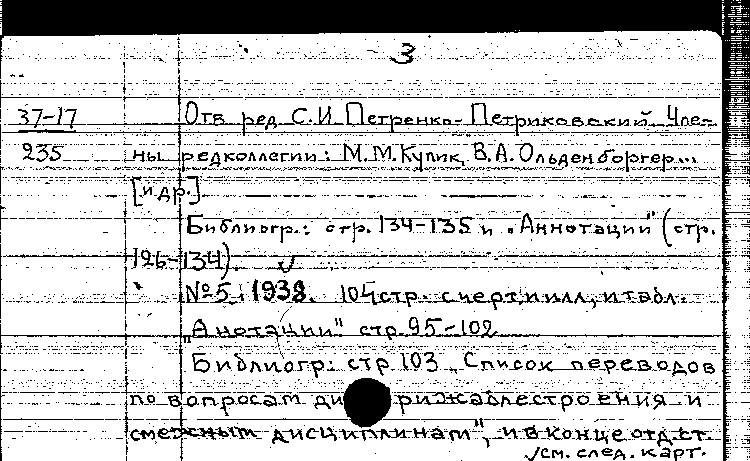 3
37-17 Отв ред С.И Петренко-Петриковский Чле-
235 ны редколлегии: М.М.Кулик, В.А.Ольденборгер...
[и др.]
Библиогр.: стр. 134-135 и "Аннотации" (стр.
126-134).
№5. 1938. 104 стр. с черт. и илл., и табл.
"Анотации" стр. 95-102
Библиогр: стр 103 "Список переводов
по вопросам ди рижаблестроения и
смежным дисциплинам", и в конце отд. ст.
см. след. карт.